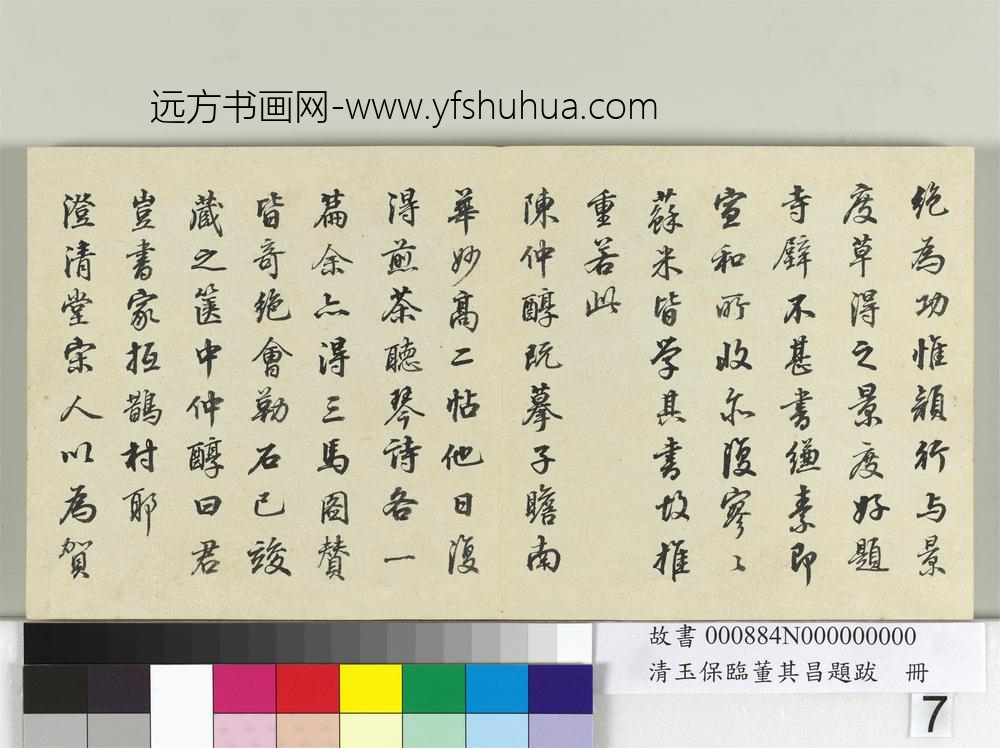 远方书画网-www.yfshuhua.com
絶為功惟顔行与景
度草得之景度好題
寺壁不甚書縑素即
宣和所收亦復寥〻
蘇米皆学其書故推
重若此
陳仲醇既摹子瞻南
華妙高二帖他日復
得煎茶聽琴詩各一
篇余亦得三馬圖贊
皆奇絶會勒石已竣
藏之篋中仲醇曰君
豈書家抵鵲村耶
澄清堂宋人以為賀
故書 000884N000000000
清玉保臨董其昌題跋 冊
7